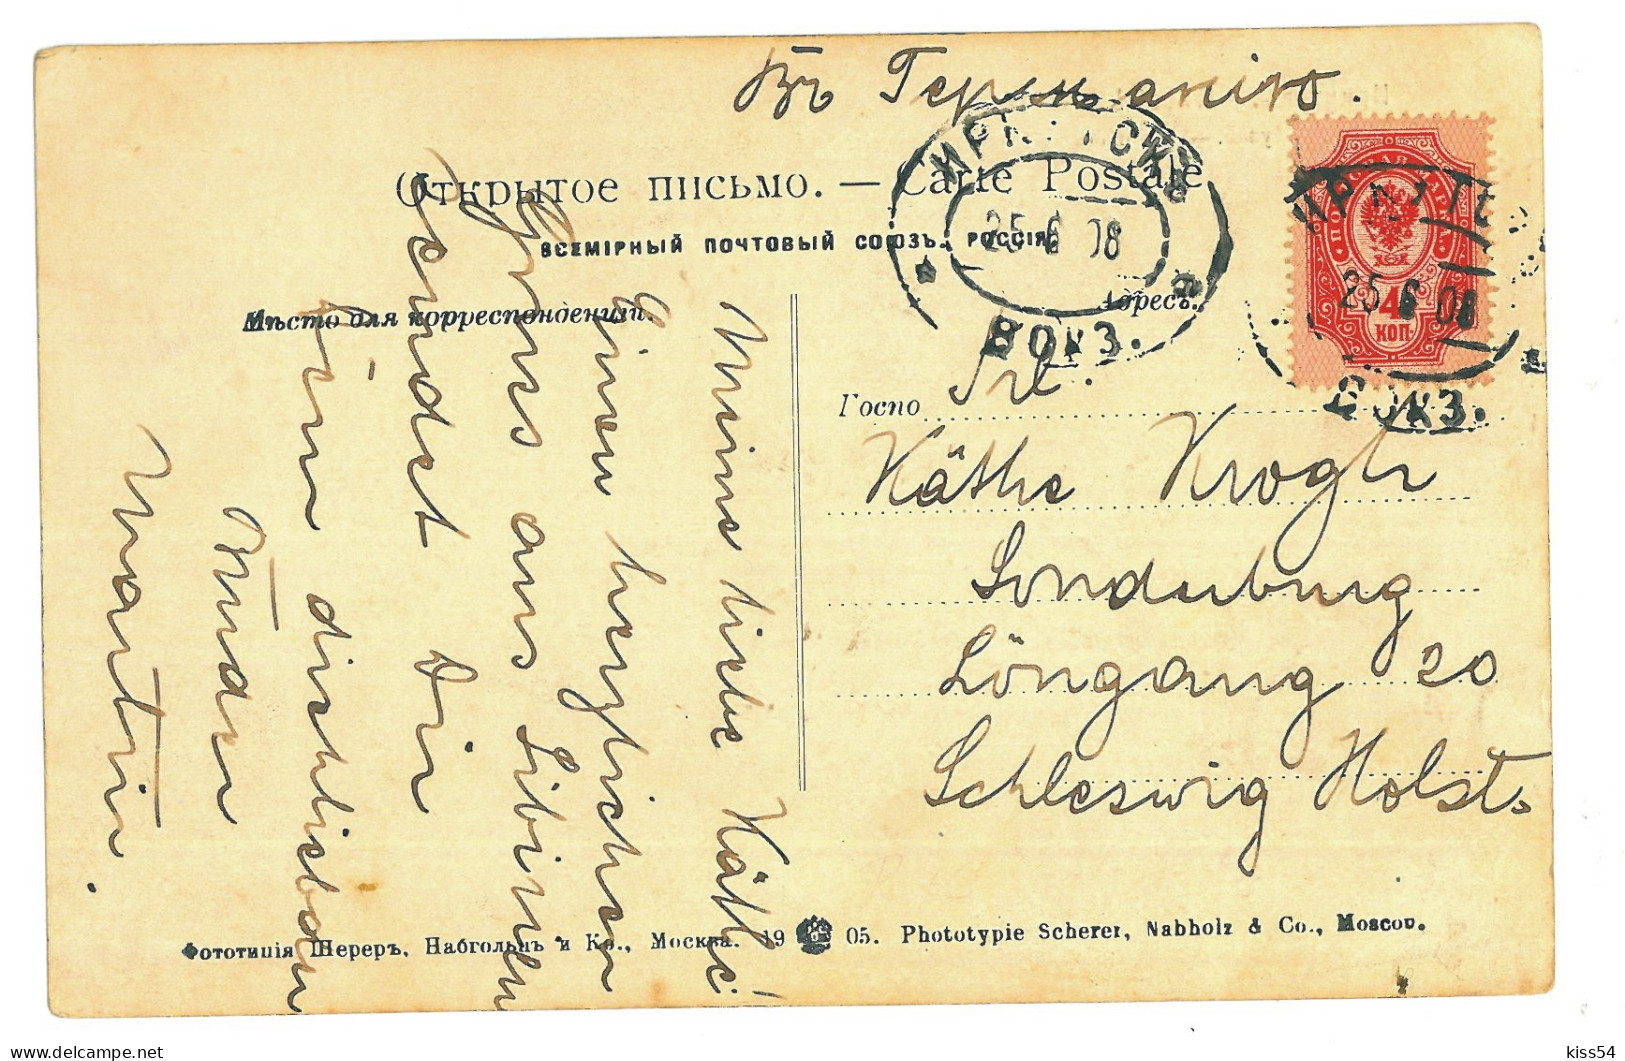 Въ Германію.
Открытое письмо. — Carte Postale
ВСЕМІРНЫЙ ПОЧТОВЫЙ СОЮЗЪ. РОССІЯ
Мѣсто для корреспонденціи.
Адресъ.
ИРКУТСКЪ
25 6 08
ВОКЗ.
ПОЧТОВАЯ МАРКА
4 КОП.
ИРКУТС
25 6 08
ВОКЗ.
Госпо
Frl.
Käthe Krogh
Sonderburg
Löngang 20
Schleswig Holst.
Meine liebe Käthe!
Einen herzlichen
Gruss aus Sibirien
sendet Dir
Dein dichliebender
Bruder
Martin.
Фототипія Шереръ, Набгольцъ и Ко., Москва. 19 05. Phototypie Scherer, Nabholz & Co., Moscou.
kiss54